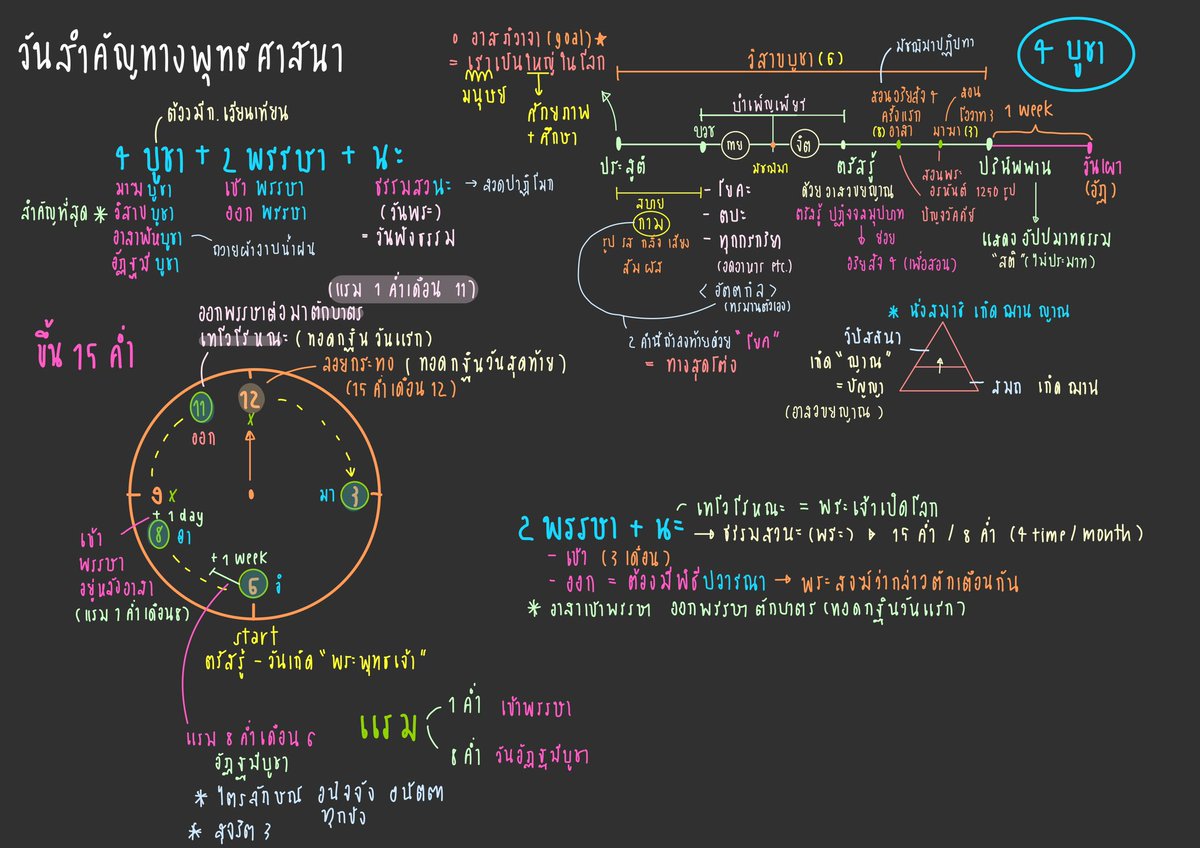 วันสำคัญทางพุทธศาสนา
ต้องมีก.เวียนเทียน
4 บูชา + 2 พรรษา + นะ
มาฆบูชา
สำคัญที่สุด * วิสาขบูชา
อาสาฬหบูชา
อัฏฐมีบูชา
เข้า พรรษา
ออก พรรษา
ถวายผ้าอาบน้ำฝน
ธรรมสวนะ → สวดปาฏิโมก
(วันพระ)
= วันฟังธรรม
อาสภิวาจา (goal) *
= เราเป็นใหญ่ในโลก
มนุษย์
ศักยภาพ
+ ศึกษา
4 บูชา
วิสาขบูชา (6)
มัชฌิมาปฏิปทา
บำเพ็ญเพียร
สอนอริยสัจ 4
ครั้งแรก
(8) อาสา
สอน
โอวาท 3
มาฆา (3)
1 week
บวช
กาย
จิต
ประสูติ
มัชฌิมา
ตรัสรู้
ปรินิพพาน
วันเผา
(อัฏ)
สบาย
กาม
รูป รส กลิ่น เสียง
สัมผัส
- โยคะ
- ตบะ
- ทุกกรกิริยา
(อดอาหาร etc.)
< อัตตกิล >
(ทรมานตัวเอง)
ด้วย อาสวขยญาณ
ตรัสรู้ ปฏิจจสมุปบาท
ย่อย
อริยสัจ 4 (เพื่อสอน)
สอนพระ
อรหันต์ 1250 รูป
ปัญจวัคคีย์
แสดง อัปปมาทธรรม
"สติ" (ไม่ประมาท)
2 คำนี้ถ้าลงท้ายด้วย "โยค"
= ทางสุดโต่ง
* นั่งสมาธิ เกิด ฌาน ญาณ
วิปัสสนา
เกิด "ญาณ"
= ปัญญา
(อาสวขยญาณ)
สมถ เกิด ฌาน
(แรม 1 ค่ำเดือน 11)
ออกพรรษาต่อมาตักบาตร
เทโวโรหณะ (ทอดกฐินวันแรก)
ขึ้น 15 ค่ำ
ลอยกระทง (ทอดกฐินวันสุดท้าย)
(15 ค่ำเดือน 12)
12
x
11
ออก
มา 3
9 x
+ 1 day
8 อา
เข้า
พรรษา
อยู่หลังอาสา
(แรม 1 ค่ำเดือน8)
+ 1 week
6 วิ
start
ตรัสรู้ - วันเกิด "พระพุทธเจ้า"
แรม 8 ค่ำเดือน 6
อัฏฐมีบูชา
แรม
1 ค่ำ เข้าพรรษา
8 ค่ำ วันอัฏฐมีบูชา
* ไตรลักษณ์ อนิจจัง อนัตตา
ทุกขัง
* สุจริต 3
เทโวโรหณะ = พระเจ้าเปิดโลก
2 พรรษา + นะ → ธรรมสวนะ (พระ) ▶ 15 ค่ำ / 8 ค่ำ (4 time/month)
- เข้า (3 เดือน)
- ออก = ต้องมีพิธีปวารณา → พระสงฆ์ว่ากล่าวตักเตือนกัน
* อาสาเข้าพรรษา ออกพรรษา ตักบาตร (ทอดกฐินวันแรก)